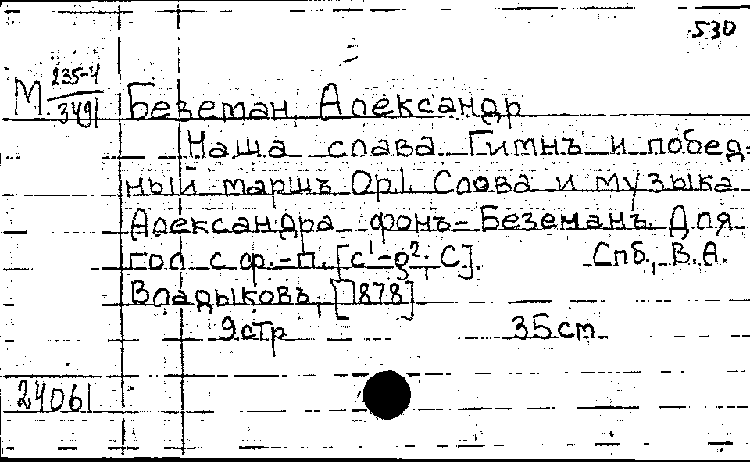 530
М 235-4/3491
Беземан, Александр
Наша слава. Гимнъ и побед-
ный маршъ Op1. Слова и музыка
Александра фонъ-Беземанъ. Для
гол с ф.-п. [c¹-g². C]. Спб., В.А.
Владыковъ, [1878]
9 стр 35 cm
24061